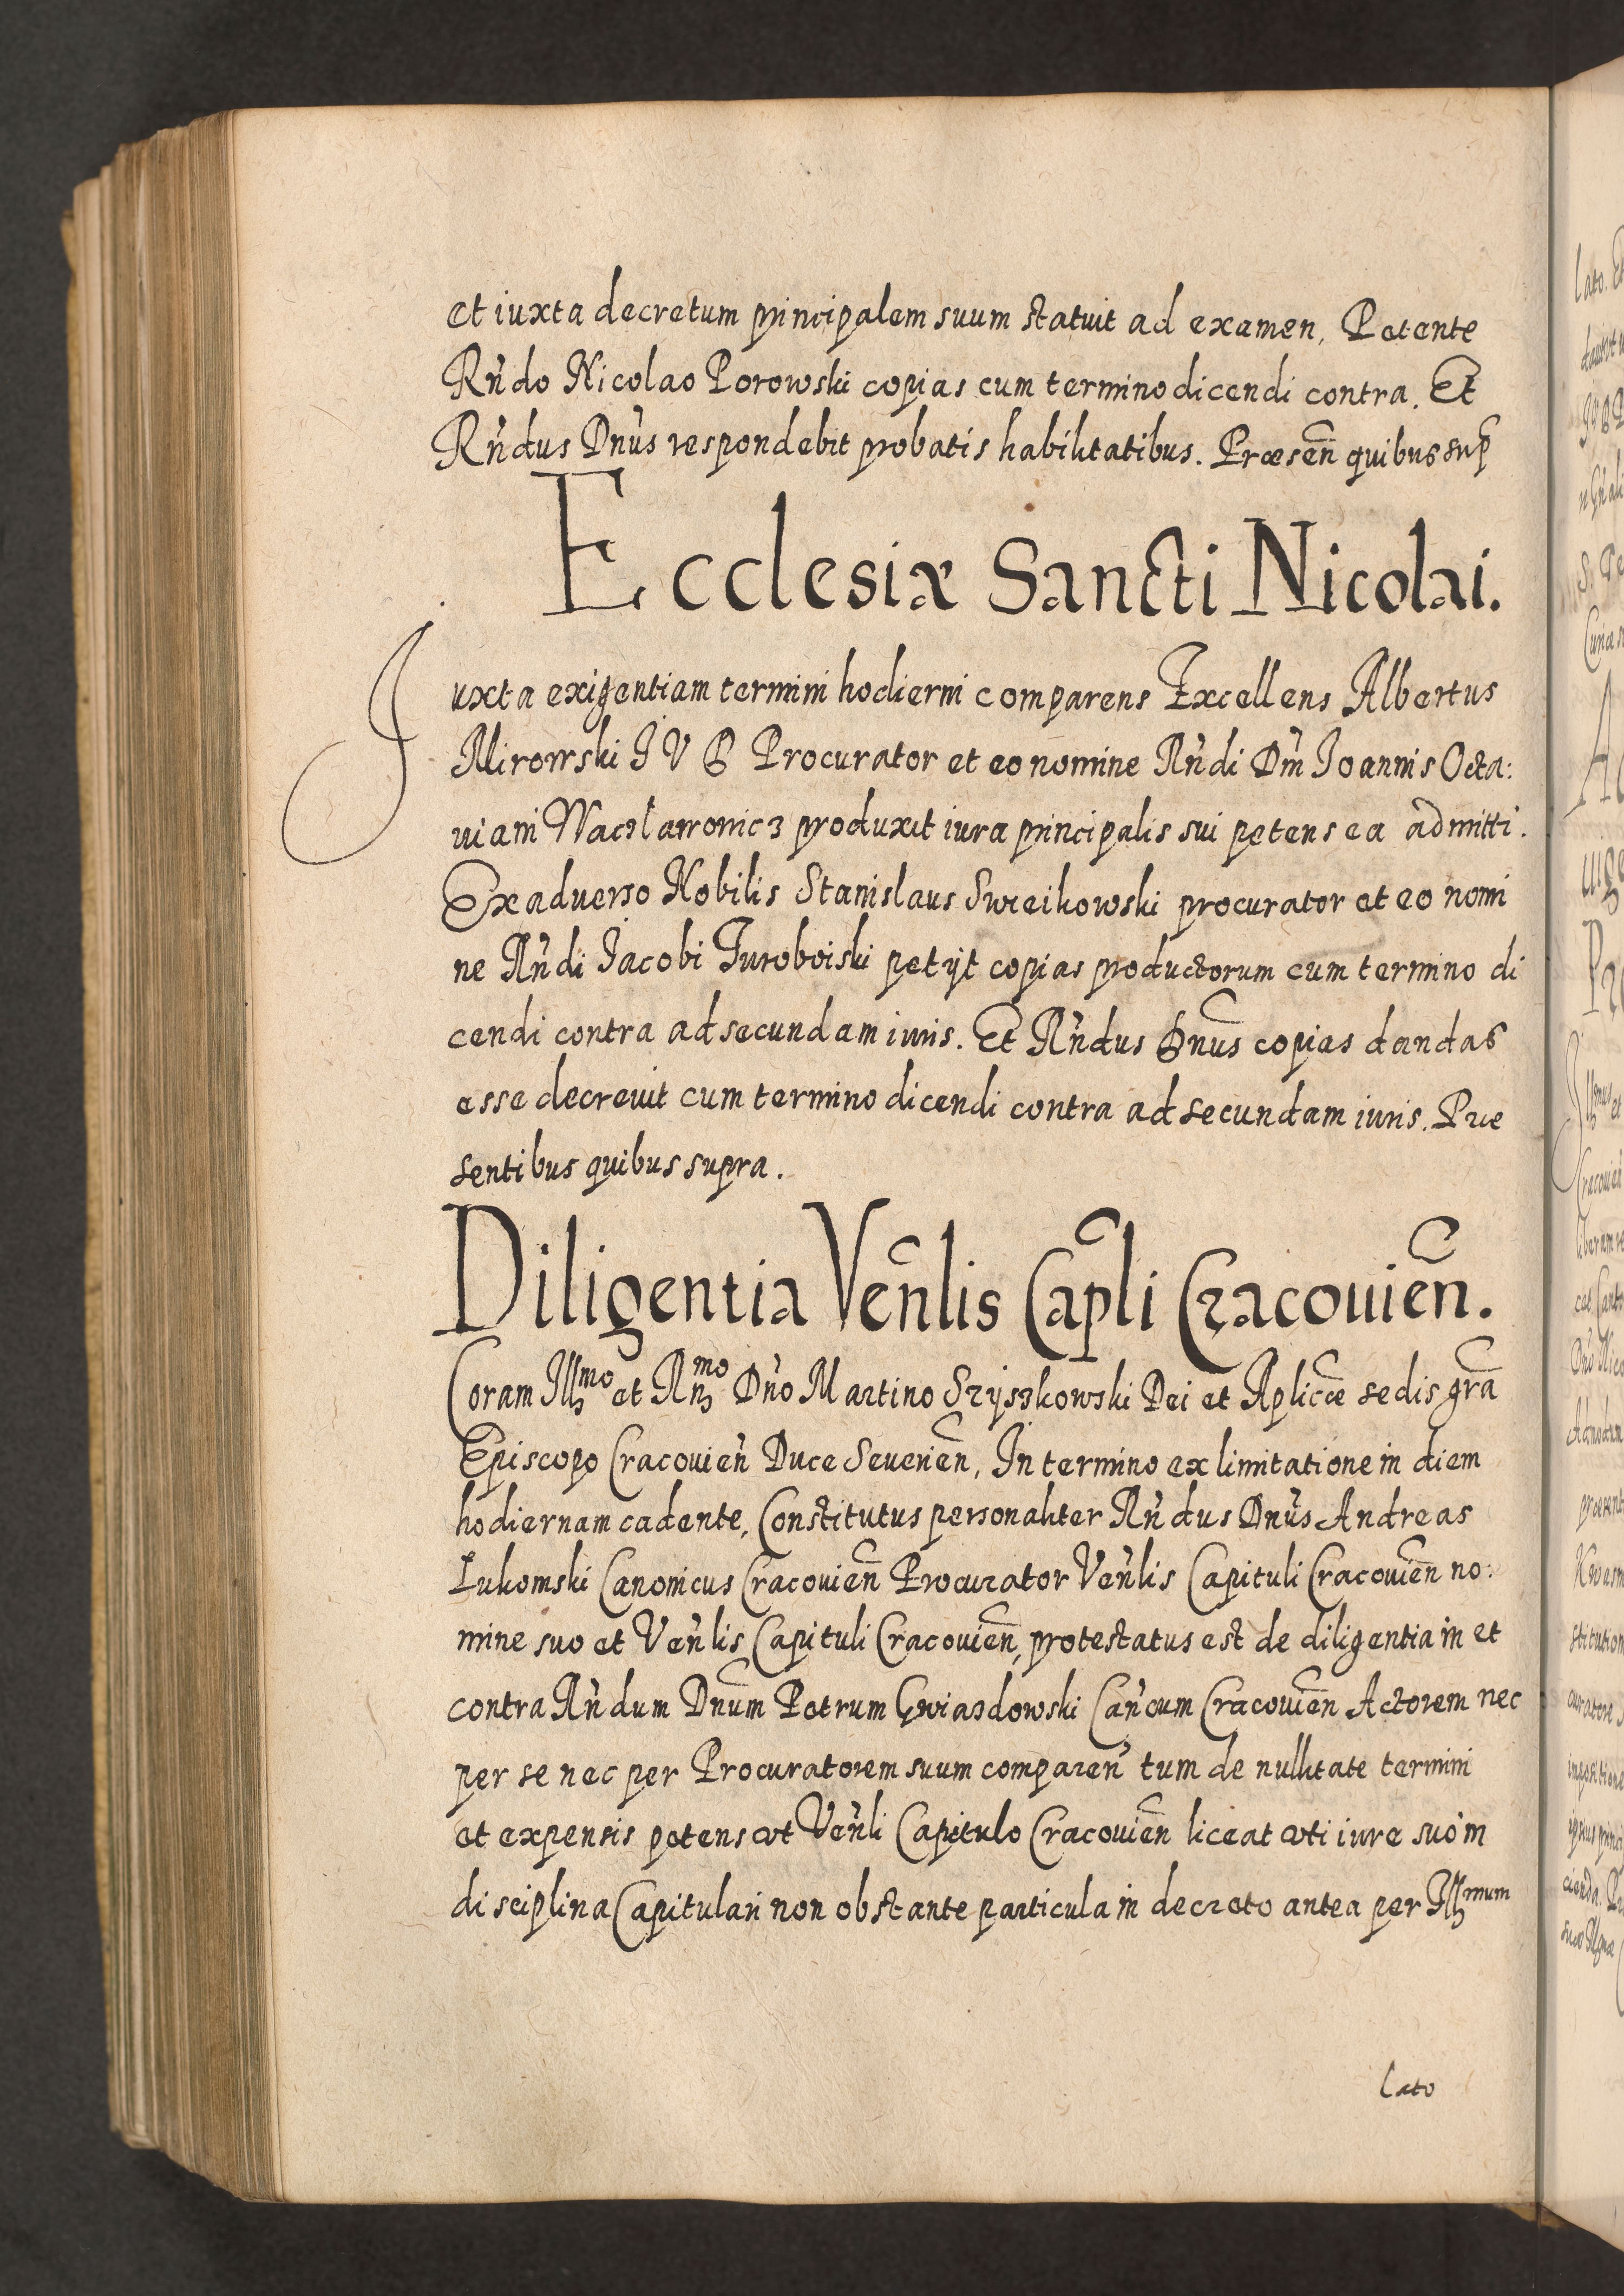 et iuxta decretum principalem suum statuit ad examen, Petente
Rn̄do Nicolao Porowski copias cum termino dicendi contra. Et
Rn̄dus Dnūs respondebit probatis habilitatibus. Præsen̄ quibus sup
Ecclesiæ Sancti Nicolai.
Iuxta exigentiam termini hodierni comparens Excellens Albertus
Mirowski I V D Procurator et eo nomine Rn̄di Dn̄i Joannis Octa:
uiani Waczlawowicz produxit iura principalis sui petens ea admitti.
Ex aduerso Nobilis Stanislaus Swieikowski procurator et eo nomi
ne Rn̄di Jacobi Turoboiski petijt copias productorum cum termino di
cendi contra ad secundam iuris. Et Rn̄dus Dnūs copias dandas
esse decreuit cum termino dicendi contra ad secundam iuris. Præ
sentibus quibus supra.
Diligentia Ven̄lis Capl̄i Cracouien̄.
Coram Illmo et Rnmo Dn̄o Martino Szyszkowski Dei et Aplicæ sedis grā
Episcopo Cracouien̄ Duce Seuerien̄, In termino ex limitatione in diem
hodiernam cadente, Constitutus personaliter Rn̄dus Dnūs Andreas
Łukomski Canonicus Cracouien̄ Procurator Ven̄lis Capituli Cracouien̄ no:
mine suo et Ven̄lis Capituli Cracouien̄, protestatus est de diligentia in et
contra Rn̄dum Dnūm Petrum Gwiazdowski Can̄cum Cracouien̄ Actorem nec
per se nec per Procuratorem suum comparen̄ tum de nullitate termini
et expensis petens vt Ven̄li Capitulo Cracouien̄ liceat vti iure suo in
disciplina Capitulari non obstante particula in decreto antea per Illmum
lato